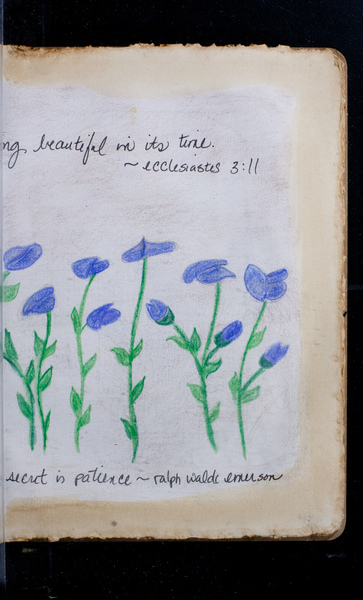 ng beautiful in its time.
~ ecclesiastes 3:11
secret is patience ~ ralph waldo emerson